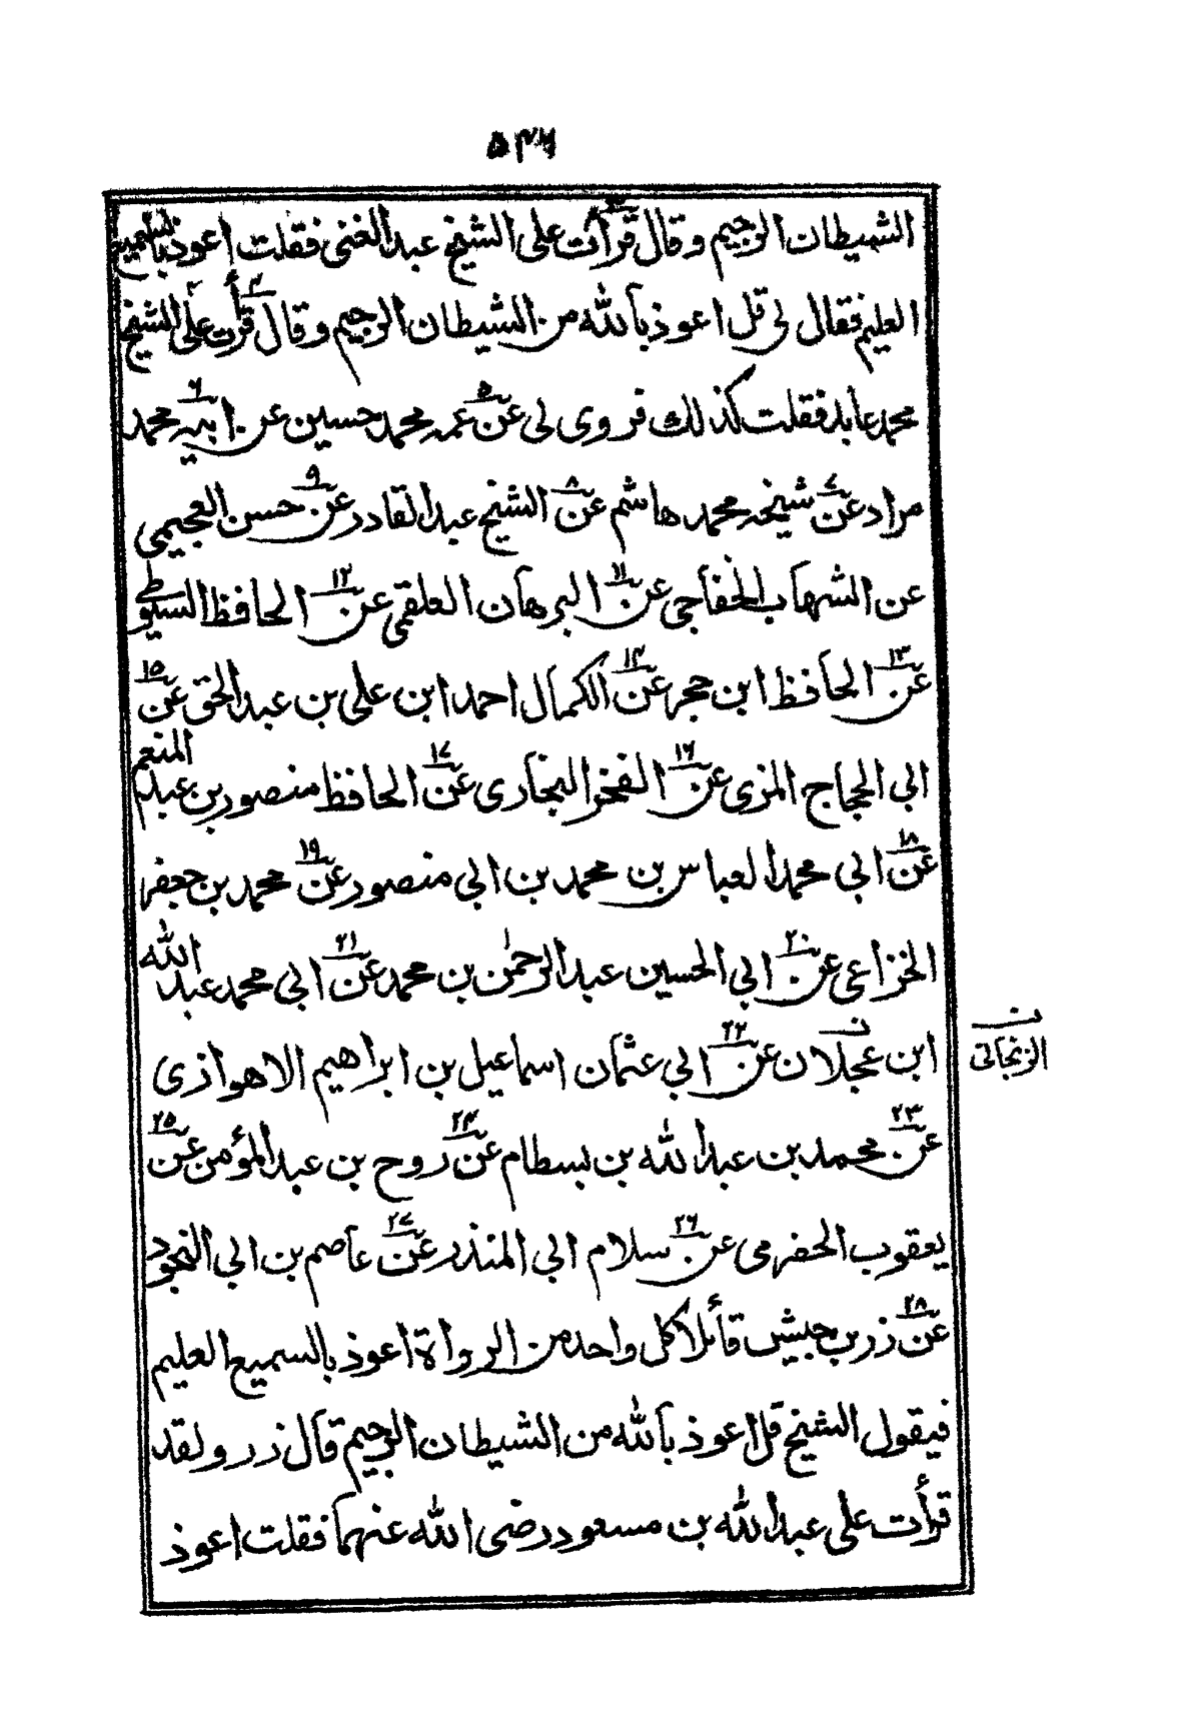 ۵۴۶
الشيطان الرجيم وقال قرأت على الشيخ عبد الغنى فقلت اعوذ بالسميع
العليم فقال لى قل اعوذ بالله من الشيطان الرجيم وقال قرأت على الشيخ
محمد عابد فقلت كذلك فروى لى عن عمه محمد حسين عن ابيه محمد
مراد عن شيخه محمد هاشم عن الشيخ عبد القادر عن حسن العجيمى
عن الشهاب الخفاجى عن البرهان العلقمى عن الحافظ السيوطى
عن الحافظ ابن حجر عن الكمال احمد ابن على بن عبد الحق عن
ابى الحجاج المزى عن الفخر البخارى عن الحافظ منصور بن عبد المنعم
عن ابى محمد العباس بن محمد بن ابى منصور عن محمد بن جعفر
الخزاعى عن ابى الحسين عبد الرحمن بن محمد عن ابى محمد عبد الله
ابن عجلان عن ابى عثمان اسماعيل بن ابراهيم الاهوازى
الزنجانى
عن محمد بن عبد الله بن بسطام عن روح بن عبد المؤمن عن
يعقوب الحضرمى عن سلام ابى المنذر عن عاصم بن ابى النجود
عن زر بن حبيش قائلا كل واحد من الرواة اعوذ بالسميع العليم
فيقول الشيخ قل اعوذ بالله من الشيطان الرجيم قال زر ولقد
قرأت على عبد الله بن مسعود رضى الله عنهما فقلت اعوذ